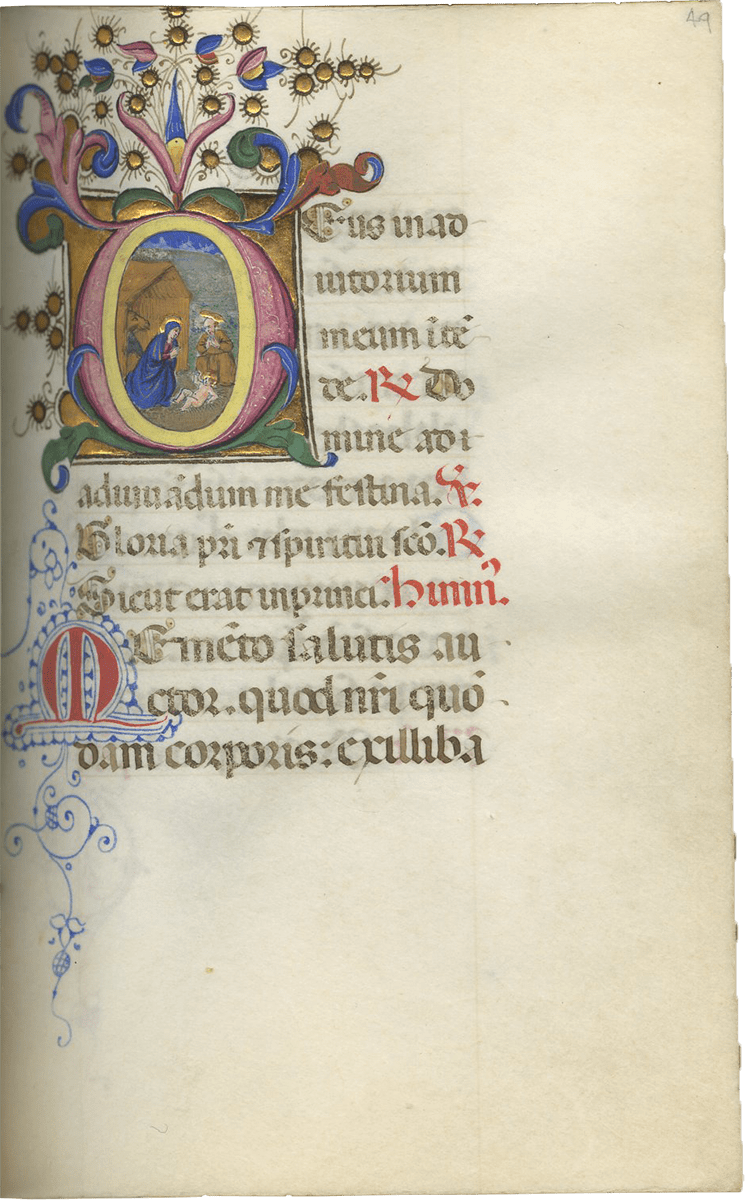 49
DEus in ad
iutorium
meum ītē
de. R Do
mine ad i
adiuuādum me festina. V.
Gloria pr̄i ⁊ spiritui scō. R
Sicut erat in princi. himn̄.
MEmēto salutis au
ctor. quod nr̄i quō
dam corporis: ex illiba